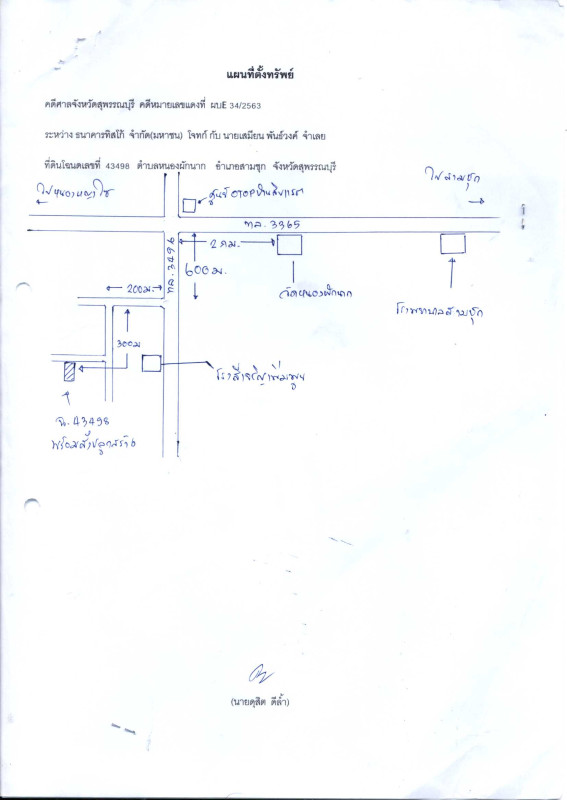 แผนที่ตั้งทรัพย์
คดีศาลจังหวัดสุพรรณบุรี คดีหมายเลขแดงที่ ผบE 34/2563
ระหว่าง ธนาคารทิสโก้ จำกัด(มหาชน) โจทก์ กับ นายเสมียน พันธ์วงค์ จำเลย
ที่ดินโฉนดเลขที่ 43498 ตำบลหนองผักนาก อำเภอสามชุก จังหวัดสุพรรณบุรี
ไปหนองหญ้าไซ
ไปสามชุก
ศูนย์ OTOP
ทล.3365
2 กม.
ทล.3496
600 ม.
200 ม.
วัดหนองผักนาก
โรงพยาบาลสามชุก
300 ม
โรงสีเจริญเพิ่มพูน
ฉ.43498
พร้อมสิ่งปลูกสร้าง
(นายดุสิต ดีล้ำ)